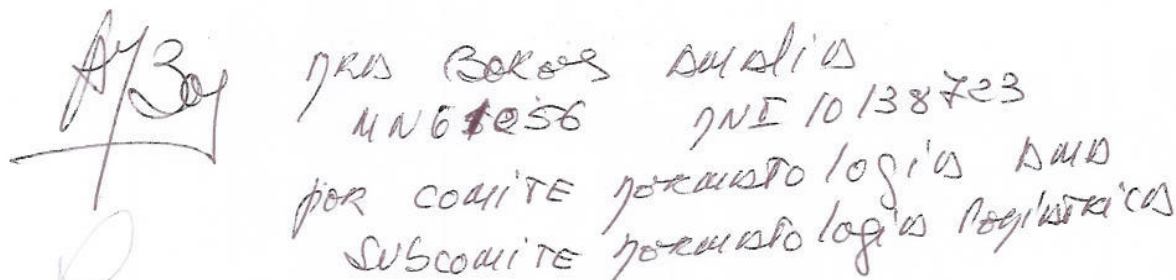 DRA BOKOS AMALIA
MN 61056 DNI 10138723
POR COMITE DERMATOLOGIA AMA
SUBCOMITE DERMATOLOGIA PEDIATRICA